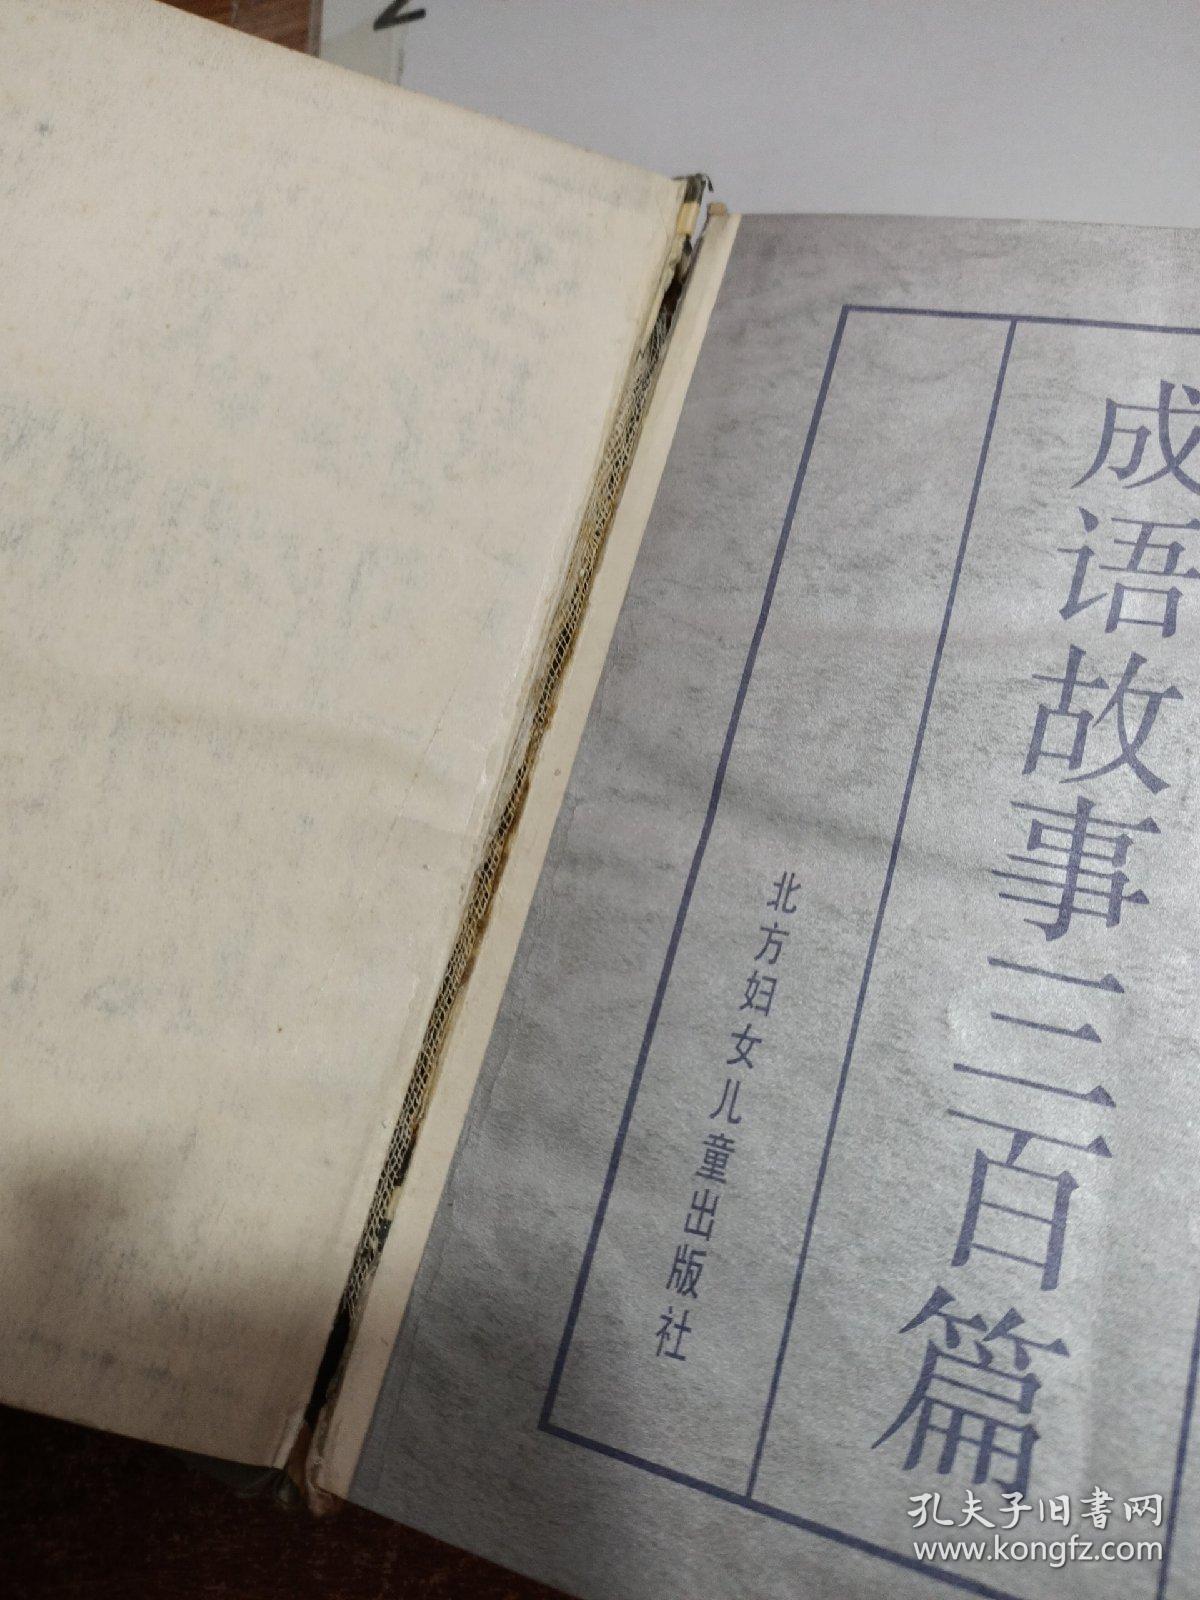 成语故事三百篇
北方妇女儿童出版社
孔夫子旧書网
www.kongfz.com